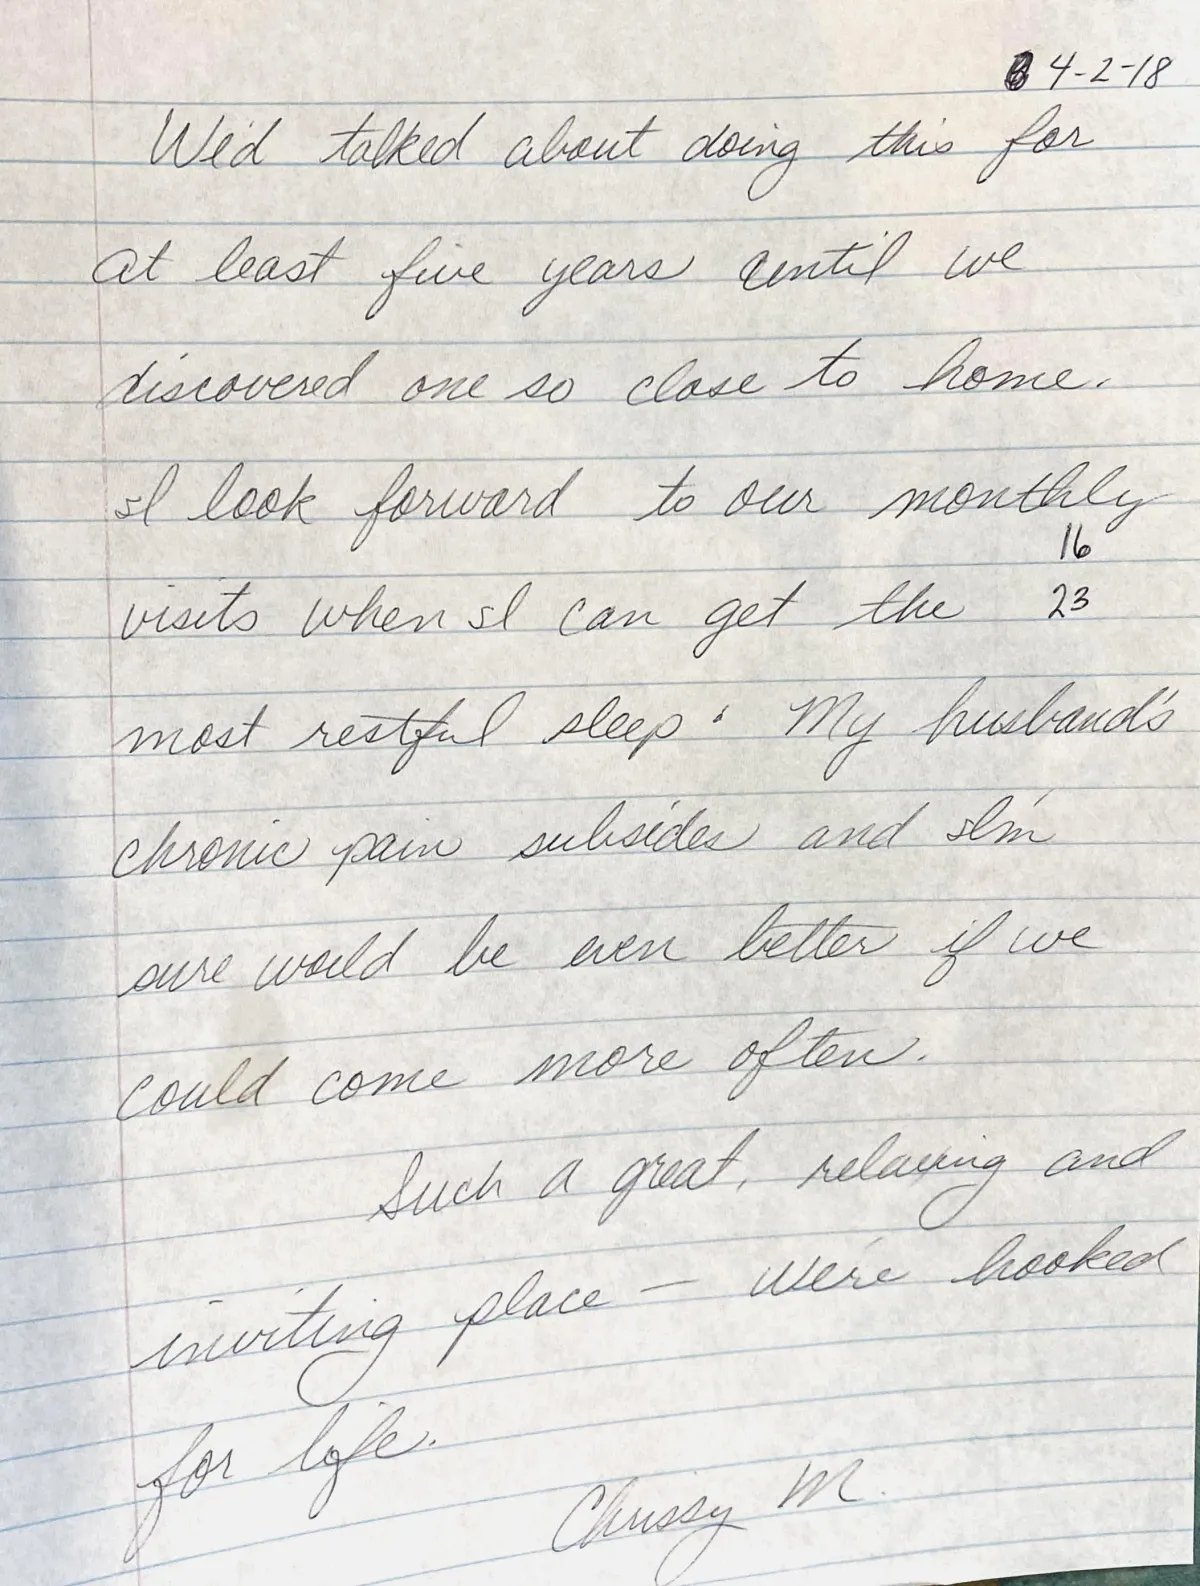 4-2-18
We'd talked about doing this for
at least five years until we
discovered one so close to home.
I look forward to our monthly
16
visits when I can get the 23
most restful sleep. My husband's
chronic pain subsides and I'm
sure would be even better if we
could come more often.
Such a great, relaxing and
inviting place — we're hooked
for life.
Chrissy M.